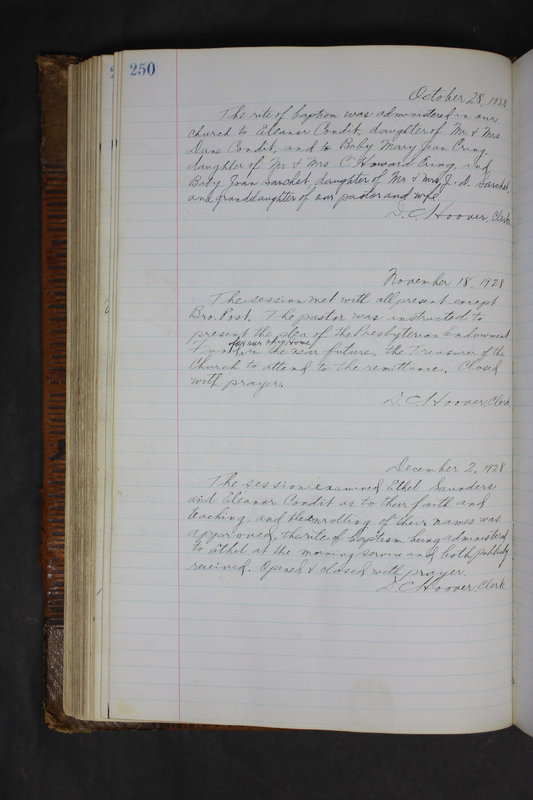 250
October 28, 1928
The rite of baptism was administered in our
church to Eleanor Condit, daughter of Mr & Mrs.
Dane Condit, and to Baby Mary Jean Cring,
daughter of Mr & Mrs. C Howard Cring, and
Baby Joan Sarchet, daughter of Mr & Mrs J. Sarchet,
and granddaughter of our pastor and wife.
D. C. Hoover, Clerk
November 18, 1928
The session met with all present except
Bro. Post. The pastor was instructed to
present the plea of the Presbyterian Endowment
Fund in the near future, the Treasurer of the
Church to attend to the remittance. Closed
with prayer.
D. C. Hoover, Clerk
December 2, 1928
The session examined Ethel Saunders,
and Eleanor Condit as to their faith and
teaching, and the enrolling of their names was
approved, the rite of baptism being administered
to Ethel at the morning service and both publicly
received. Opened & closed with prayer.
D. C. Hoover, Clerk.